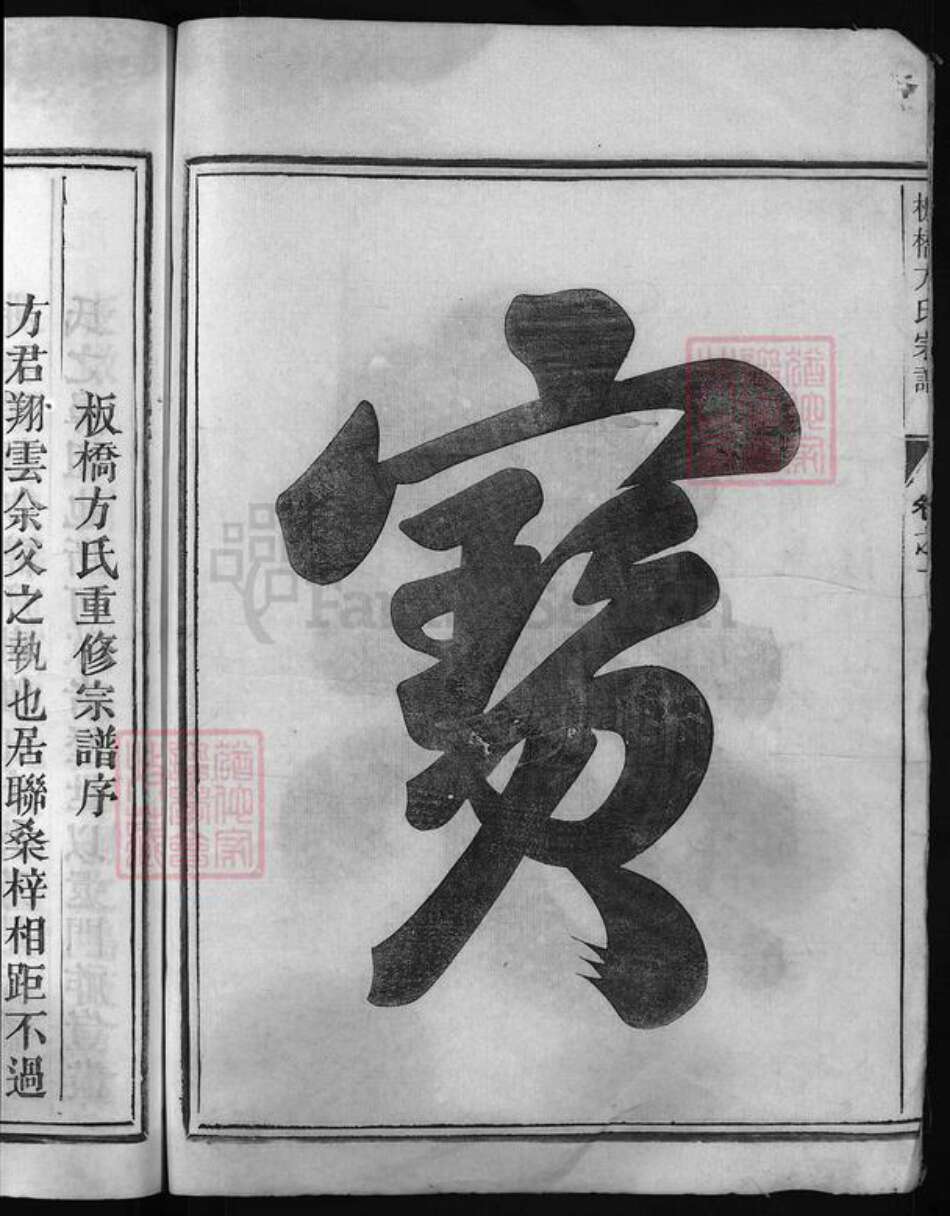 板橋方氏宗譜
卷之一
寶
板橋方氏重修宗譜序
方君翔雲余父之執也居聯桑梓相距不過
FamilySearch